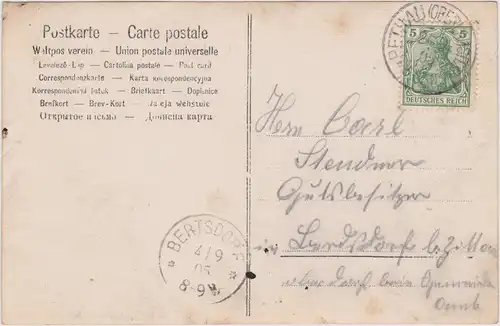 Postkarte – Carte postale
Weltpostverein – Union postale universelle
Levelező-Lap – Cartolina postale – Post card
Correspondenzkarte – Karta korespondencyjna
Korrespondenční lístek – Briefkaart – Dopisnice
Brefkort – Brev-Kort
Открытое письмо – Дописна карта
5 5
DEUTSCHES REICH
Herrn Carl
Stendner
Gutsbesitzer
in Bertsdorf bei Zittau
BERTSDORF
4/9
05
8-9V